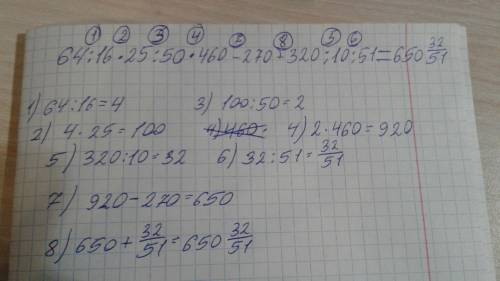 ① ② ③ ④ ⑦ ⑧ ⑤ ⑥
64:16·25:50·460-270+320:10:51=650 32/51
1) 64:16=4 3) 100:50=2
2) 4·25=100 4) 460· 4) 2·460=920
5) 320:10=32 6) 32:51=32/51
7) 920-270=650
8) 650+32/51=650 32/51